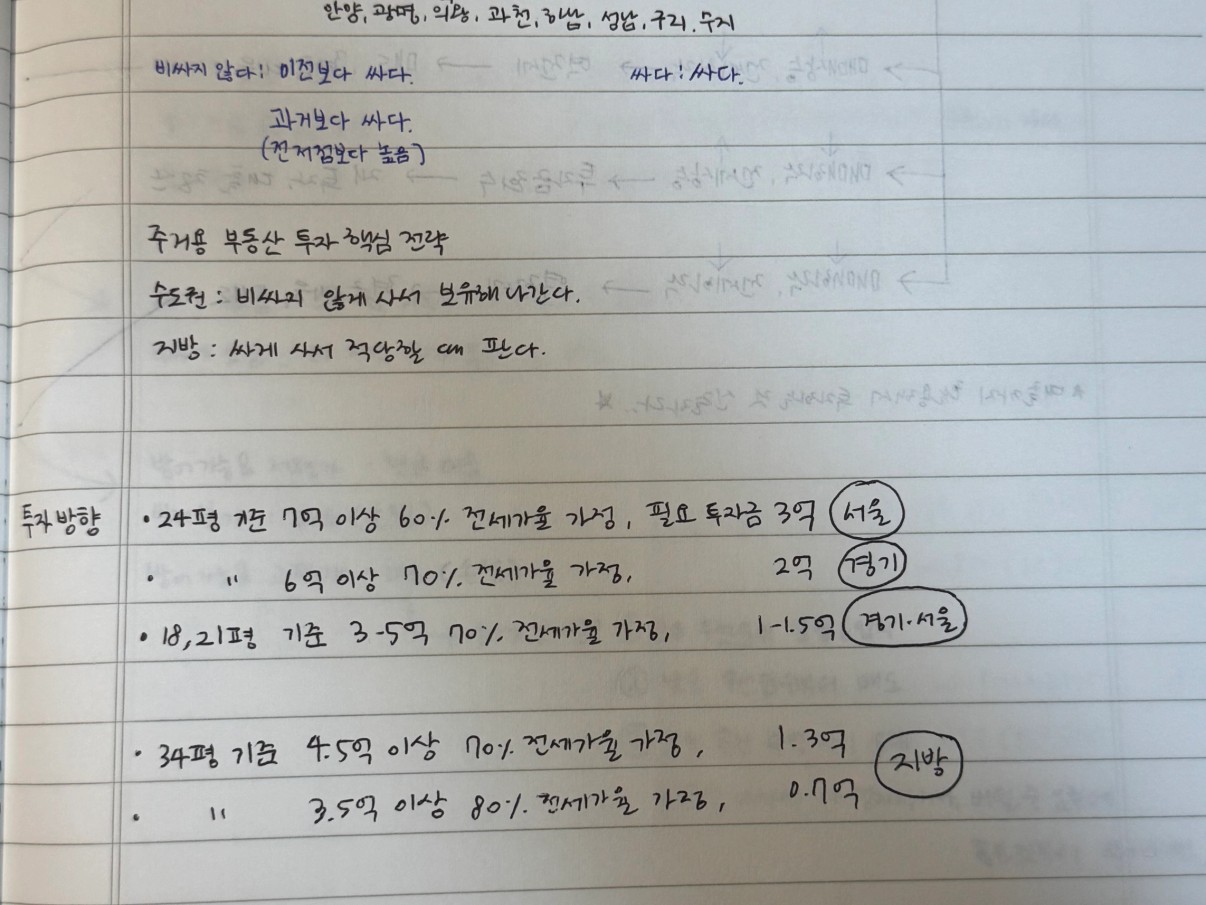 안양, 광명, 의왕, 과천, 하남, 성남, 구리, 수지
비싸지 않다: 이전보다 싸다. 싸다: 싸다.
과거보다 싸다.
(전저점보다 높음)
주거용 부동산 투자 핵심 전략
수도권: 비싸지 않게 사서 보유해 나간다.
지방: 싸게 사서 적당할 때 판다.
투자방향 • 24평 기준 7억 이상 60% 전세가율 가정, 필요 투자금 3억 서울
• " 6억 이상 70% 전세가율 가정, 2억 경기
• 18, 21평 기준 3-5억 70% 전세가율 가정, 1-1.5억 경기·서울
• 34평 기준 4.5억 이상 70% 전세가율 가정, 1.3억 지방
• " 3.5억 이상 80% 전세가율 가정, 0.7억